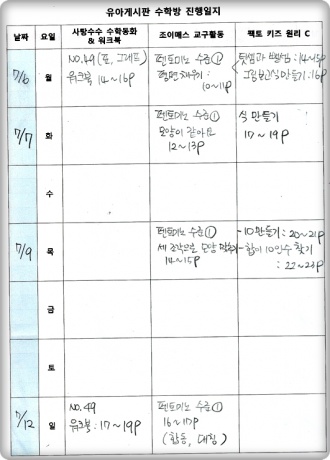 유아게시판 수학방 진행일지
날짜 요일 사탕수수 수학동화 & 워크북 조이매스 교구활동 팩토 키즈 원리 C
7/6 월
NO.49 (표, 그래프)
워크북 14~16p
펜토미노 수준①
평면채우기
10~11p
덧셈과 뺄셈 : 14~15p
그림보고 식 만들기 : 16p
7/7 화
펜토미노 수준①
모양이 같아요
12~13p
식 만들기
17~19p
수
7/9 목
펜토미노 수준①
세 조각으로 모양
14~15p
-10만들기 : 20~21p
-합이 10인 수 찾기
: 22~23p
금
토
7/12 일
NO.49
워크북 : 17~19p
펜토미노 수준①
16~17p
(합동, 대칭)